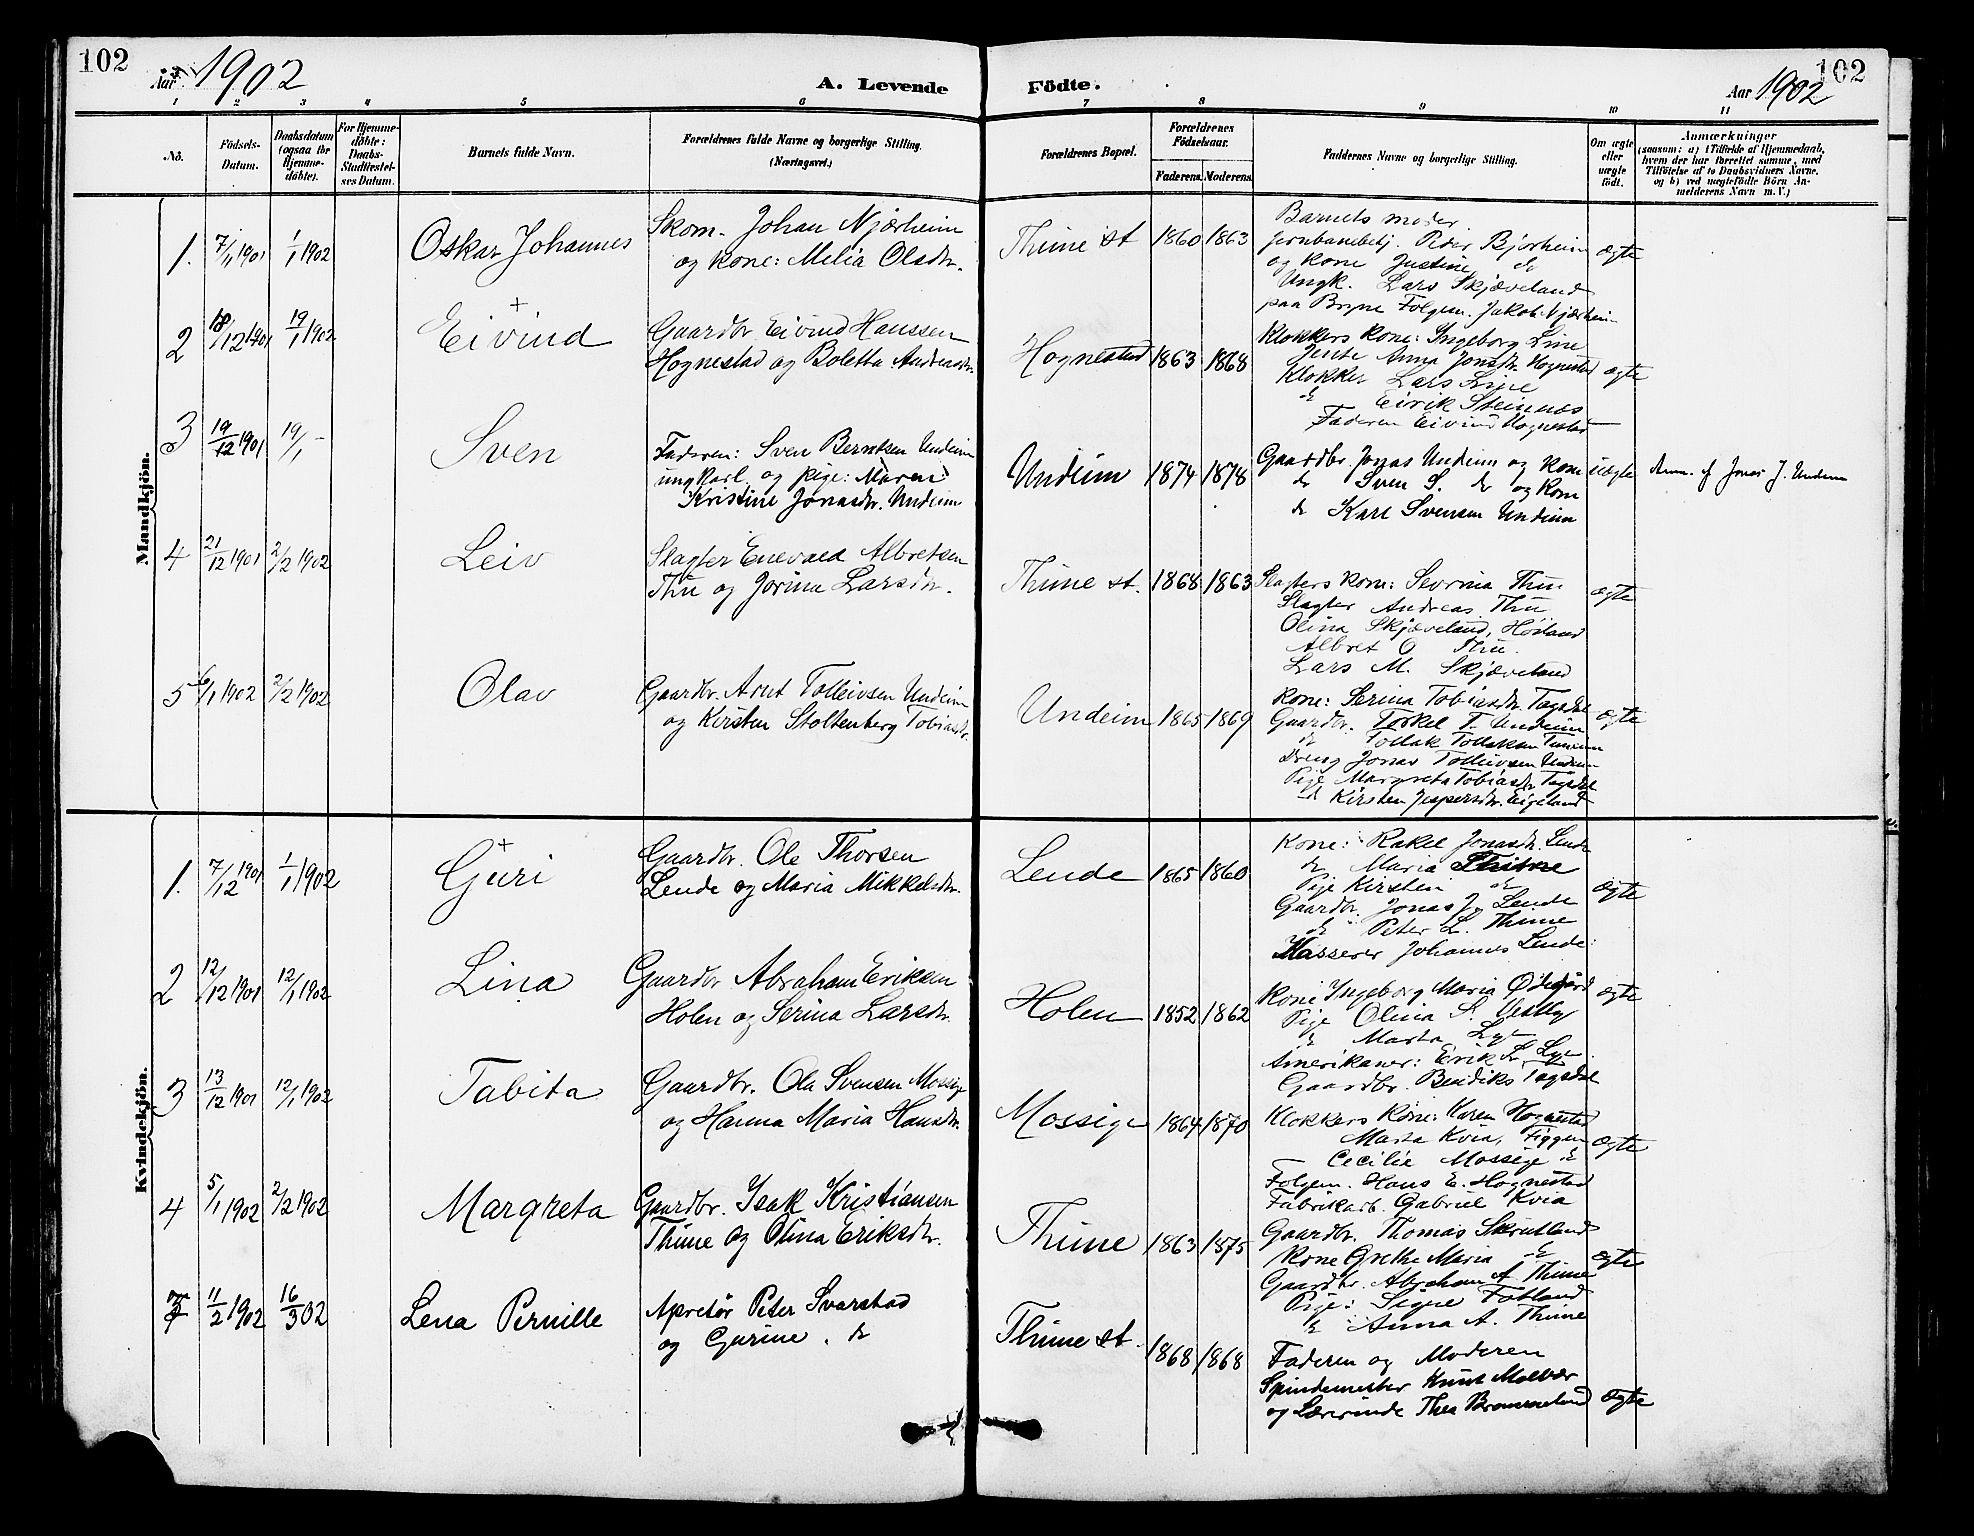 102
Aar 1902
A. Levende
Födte.
Aar 1902
102
1 2 3 4 5 6 7 8 9 10 11
No.
Födsels-
Datum.
Daabsdatum
(ogsaa for
Hjemme-
döbte).
For Hjemme-
döbte:
Daabs-
Stadfæstel-
ses Datum.
Barnets fulde Navn.
Forældrenes fulde Navne og borgerlige Stilling.
(Næringsvei.)
Forældrenes Bopæl.
Forældrenes
Födselsaar.
Faderens.
Moderens.
Faddernes Navne og borgerlige Stilling.
Om ægte
eller
uægte
födt.
Anmærkninger
(saasom: a) i Tilfælde af Hjemmedaab,
hvem der har forrettet samme, med
Tilföielse af to Daabsvidners Navne,
og b) ved uægtefödte Börn An-
melderens Navn m. V.)
Mandkjön.
1. 7/1 1901 1/1 1902
Oskar Johannes
Skom. Johan Njærheim
og kone: Melia Olsdr.
Thime st 1860 1863
Barnets moder
jernbanebetj. Peder Bjorheim
og kone Justine do
Ungk. Lars Skjæveland
paa Bryne Folgem. Jakob Njærheim
ægte
2 18/12 1901 19/1 1902
+
Eivind
Gaardbr. Eivind Hanssen
Hognestad og Boletta Andreasdr.
Hognestad 1863 1868
Klokkers kone: Ingeborg Line
Jente Anna Jonsdr. Hognestad
Klokker Lars Line
do Eirik Steinnes
Faderen Eivind Hognestad
ægte
3 19/12 1901 19/1 -
Sven
Faderen: Sven Berntsen Undeim
ungkarl og pige: Maren
Kristine Jonasdr. Undeim
Undeim 1874 1878
Gaardbr. Jonas Undeim og kone
do Sven S. do og kone
do Karl Svensen Undeim
uægte
Anm. af Jonas J. Undeim
4 21/12 1901 2/2 1902
Leiv
Slagter Enevald Albretsen
Thu og Jorina Larsdr.
Thime st. 1868 1863
Slagters kone: Sevrina Thu
Slagter Andreas Thu
Olina Skjæveland, Høiland
Albret O Thu.
Lars M. Skjæveland
ægte
5 6/1 1902 2/2 1902
Olav
Gaardbr. Arnt Tolleivsen Undeim
og Kirsten Stoltenberg Tobiasdr.
Undeim 1865 1869
Kone: Serina Tobiasdr. Tagdal
Gaardbr. Torkel T. Undeim
do Tollak Tollaksen
Dreng Jonas Tolleivsen Undeim
Pige Margreta Tobiasdr. Tagdal
do Kirsten Jespersdr. Eigeland
ægte
Kvindekjön.
1. 7/12 1901 1/1 1902
+
Guri
Gaardbr. Ole Thorsen
Lende og Maria Mikkelsdr.
Lende 1865 1860
Kone: Rakel Jonasdr. Lende
do Maria Thime
Pige Kirsten do
Gaardbr. Jonas J. Lende
do Peter L. Thime
Kasserer Johannes Lende
ægte
2 12/12 1901 12/1 1902
Lina
Gaardbr Abraham Eriksen
Holen og Serina Larsdr.
Holen 1852 1862
Kone Ingeborg Maria Ødegård
Pige Olina S. Vestly
do Marta Lye
Amerikaner: Erik L. Lye
Gaardbr. Bendiks Tagdal
ægte
3 13/12 1901 12/1 1902
Tabita
Gaardbr. Ole Svensen Mossige
og Hanna Maria Hansdr.
Mossige 1864 1870
Klokkers kone: Karen Hognestad
Marta Kvia, Figgen
Cecilie Mossige do
Folgem. Hans E. Hognestad
Fabrikarb. Gabriel Kvia
ægte
4 5/1 1902 2/2 1902
Margreta
Gaardbr. Isak Kristiansen
Thime og Olina Eriksdr.
Thime 1863 1875
Gaardbr. Thomas Skrutland
Kone Grethe Maria do
Gaardbr. Abraham A Thime
Pige: Signe Fotland
do Anna A. Thime
ægte
11/2 1902 16/3 02
Lena Pernille
Apretør Peter Svarstad
og Gurine. do
Thime st. 1868 1868
Faderen og Moderen
Spindemester Knut Molvær
og Lærerinde Thea Brommeland
ægte